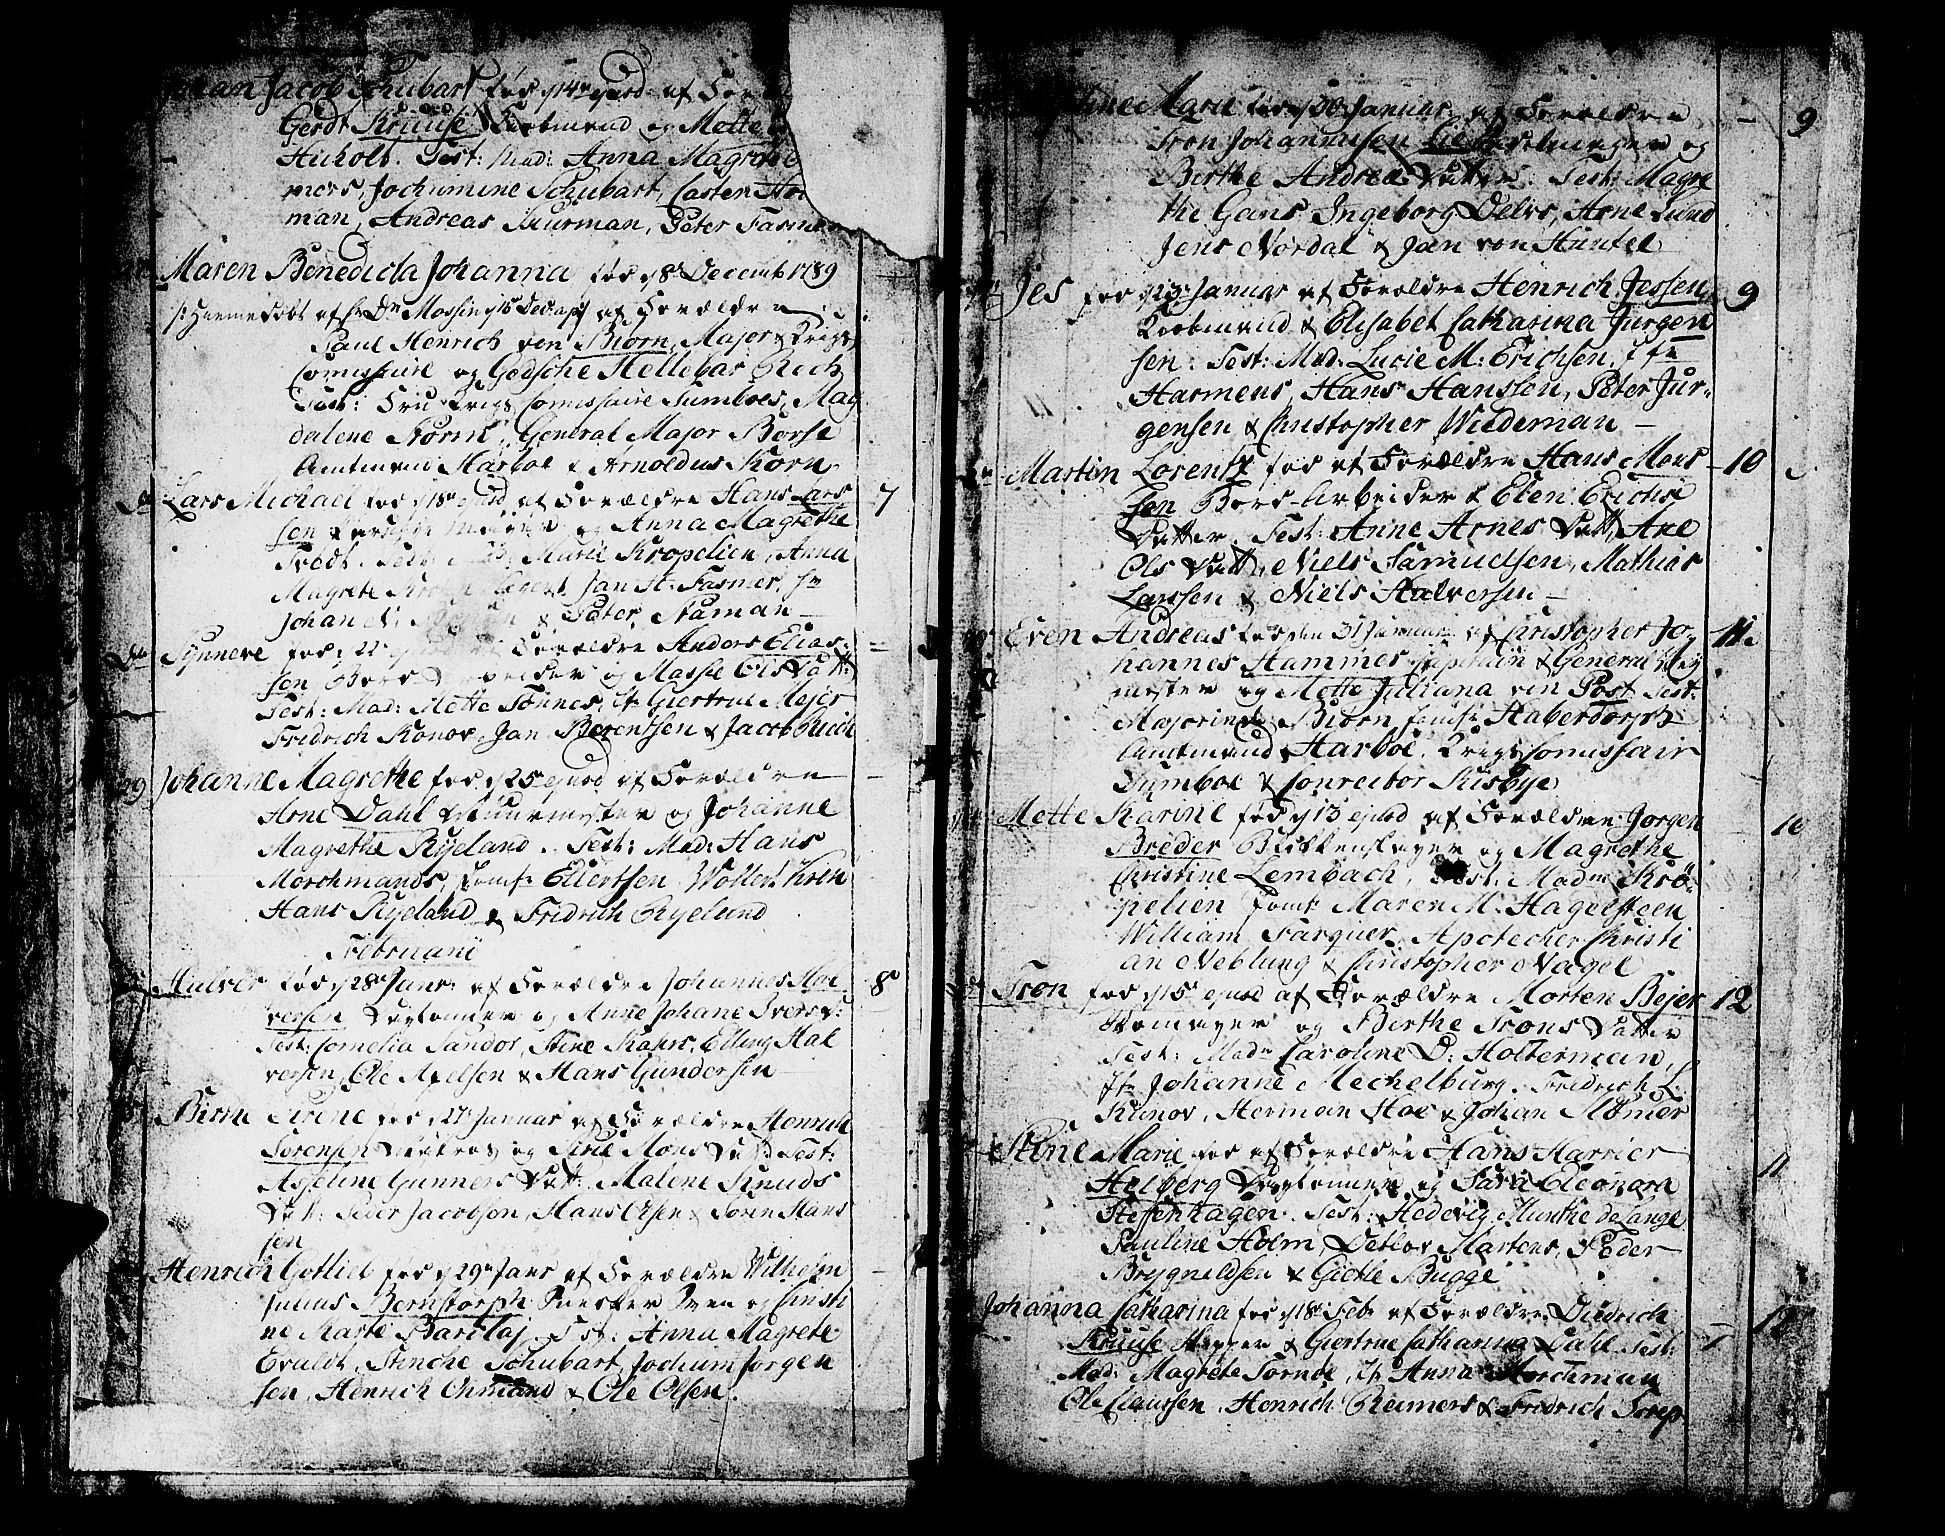 Johan Jacob Schubart fød d 14de ejusd. af Foræld
Gerdt Kruuse Kiøbmand og Mette
Hicholt. Test: Mad: Anna Magrethe
mers, Jochumine Schubart, Casten
man, Andreas Buurman, Peter Fasmer
Maren Benedicta Johanna fød d 8de Decemb 1789
hiemmedøbt af Hr Mossin d 15 Dec af Forældre
Paul Henrich von Biørn, Major & Krigs
Comissaire og Godsche Hellebar Rich
Test: Fru Krigs Comissaire Sumboes, Mag
dalene Storm, General Major Borse
Amtmand Harboe & Arnoldus Korn
Do Lars Michael fød d 18de ejusd af Forældre Hans Lars 7
sen og Anna Magrethe
Tredt. Test: Mad: Marie Kropelien, Anna
Magrete Jan H: Fasmer,
Johan & Peter Staman
Do Synneve fød d 22 ejusd af Forældre Anders Elias
sen Bors Arbeider og Masse Ols Datt:
Test: Mad: Mette Tønnes, Jf: Giertrue Mejer
Fridrich Konov, Jan Berentsen & Jacob Rich
29 Johanne Magrethe fød d 25 ejusd af Forældre
Arne Dahl Muurmester og Johanne
Magrethe Ryeland. Test: Mad: Hans
Morchmands, Jomfr Ellertsen Wollert Krin
Hans Ryeland & Fridrich Ryeland
Februarii
Halver fød d 28de Janr: af Forældre Johannes Hal 8
versen Daglønner og Anne Johane Ivers D:
Test: Cornelia Sandor, Stine Kahrs, Elling Hal
versen, Ole Axelsen & Hans Gundersen
Birte Sirene fød d 27 Januar af Forældre Henrich
Sørensen og Sirie Mons Datt Test:
Asseline Gunners Datt: Malene Knuds
Datt: Peder Jacobsen, Hans Olsen & Søren Hans
sen
Henrich Gotlieb fød d 29 Janr af Forældre Wilhelm
Julius Bernstorph og Christi
ne Marie Barclaj. Test: Anna Magrete
Evaldt, Stinche Schubart, Jochum Jørgen
sen, Henrich Ohmand & Ole Olsen.
line Marie fød d 30 Januar af Forældre 9
Tron Johannesen og
Birthe Andreæ Datter. Test: Magre
the Gans Ingeborg Delvs, Arne Lund
Jens Nordal & Jan von Huntel
Jes fød d 23 Januar af Forældre Henrich Jessen 9
Kiøbmand & Elisabet Catharina Jurgen
sen. Test: Mad: Lucie M: Erichsen, Jfr
Harmens, Hans Hanssen, Peter Jur-
gensen & Christopher Wiedeman
Martin Lorentz fød af Forældre Hans Mons 10
sen Bors-Arbeider & Elen Erichs
Datter. Test: Anne Arnes Datt, Ane
Ols Datt, Niels Samuelsen, Mathias
Larssen & Niels Halversen
Even Andreas fød den 31 Januar af Christopher Jo- 11.
hannes Hammer Capitain & General
mester og Mette Juliana von Post Test:
Majorinde Biørn Jomfr Haberdorph
Amtmand Harboe, Krigs Comissair
Sumboe & Conrector Kisbye
Mette Karine fød d 13 ejusd af Forældre Jørgen 10
Breder Blikkenslager og Magrethe
Christine Lembach, Test: Madm Krö-
pelien Jomfr Maren M: Hagelsteen
William Farquer, Apotecher Christi
an Neblung & Christopher Nagel
Tron fød d 15 ejusd af Forældre Morten Bejer 12
Skomager og Birthe Trons Datter
Test: Madm Caroline D: Holterman,
Jfr Johanne Mechelburg, Fridrich L.
Konov, Herman Hoe & Johan Mømer
Stine Marie fød af Forældre Hans Harrier 11
Helberg Daglønner og Sara Eleonora
Steffenhagen. Test: Hedevig Munthe de Lange
Pauline Holm, Detlov Martens, Peder
Brygnildsen & Giertle Bugge
Johanna Catharina fød d 18 Feb af Forældre Didrich 12
Kruuse & Giertrue Catharina Dahl. Test:
Mad: Magrete Tornoe, Jfr Anna Morchman
Ole Claussen, Henrich Reimers & Fridrich